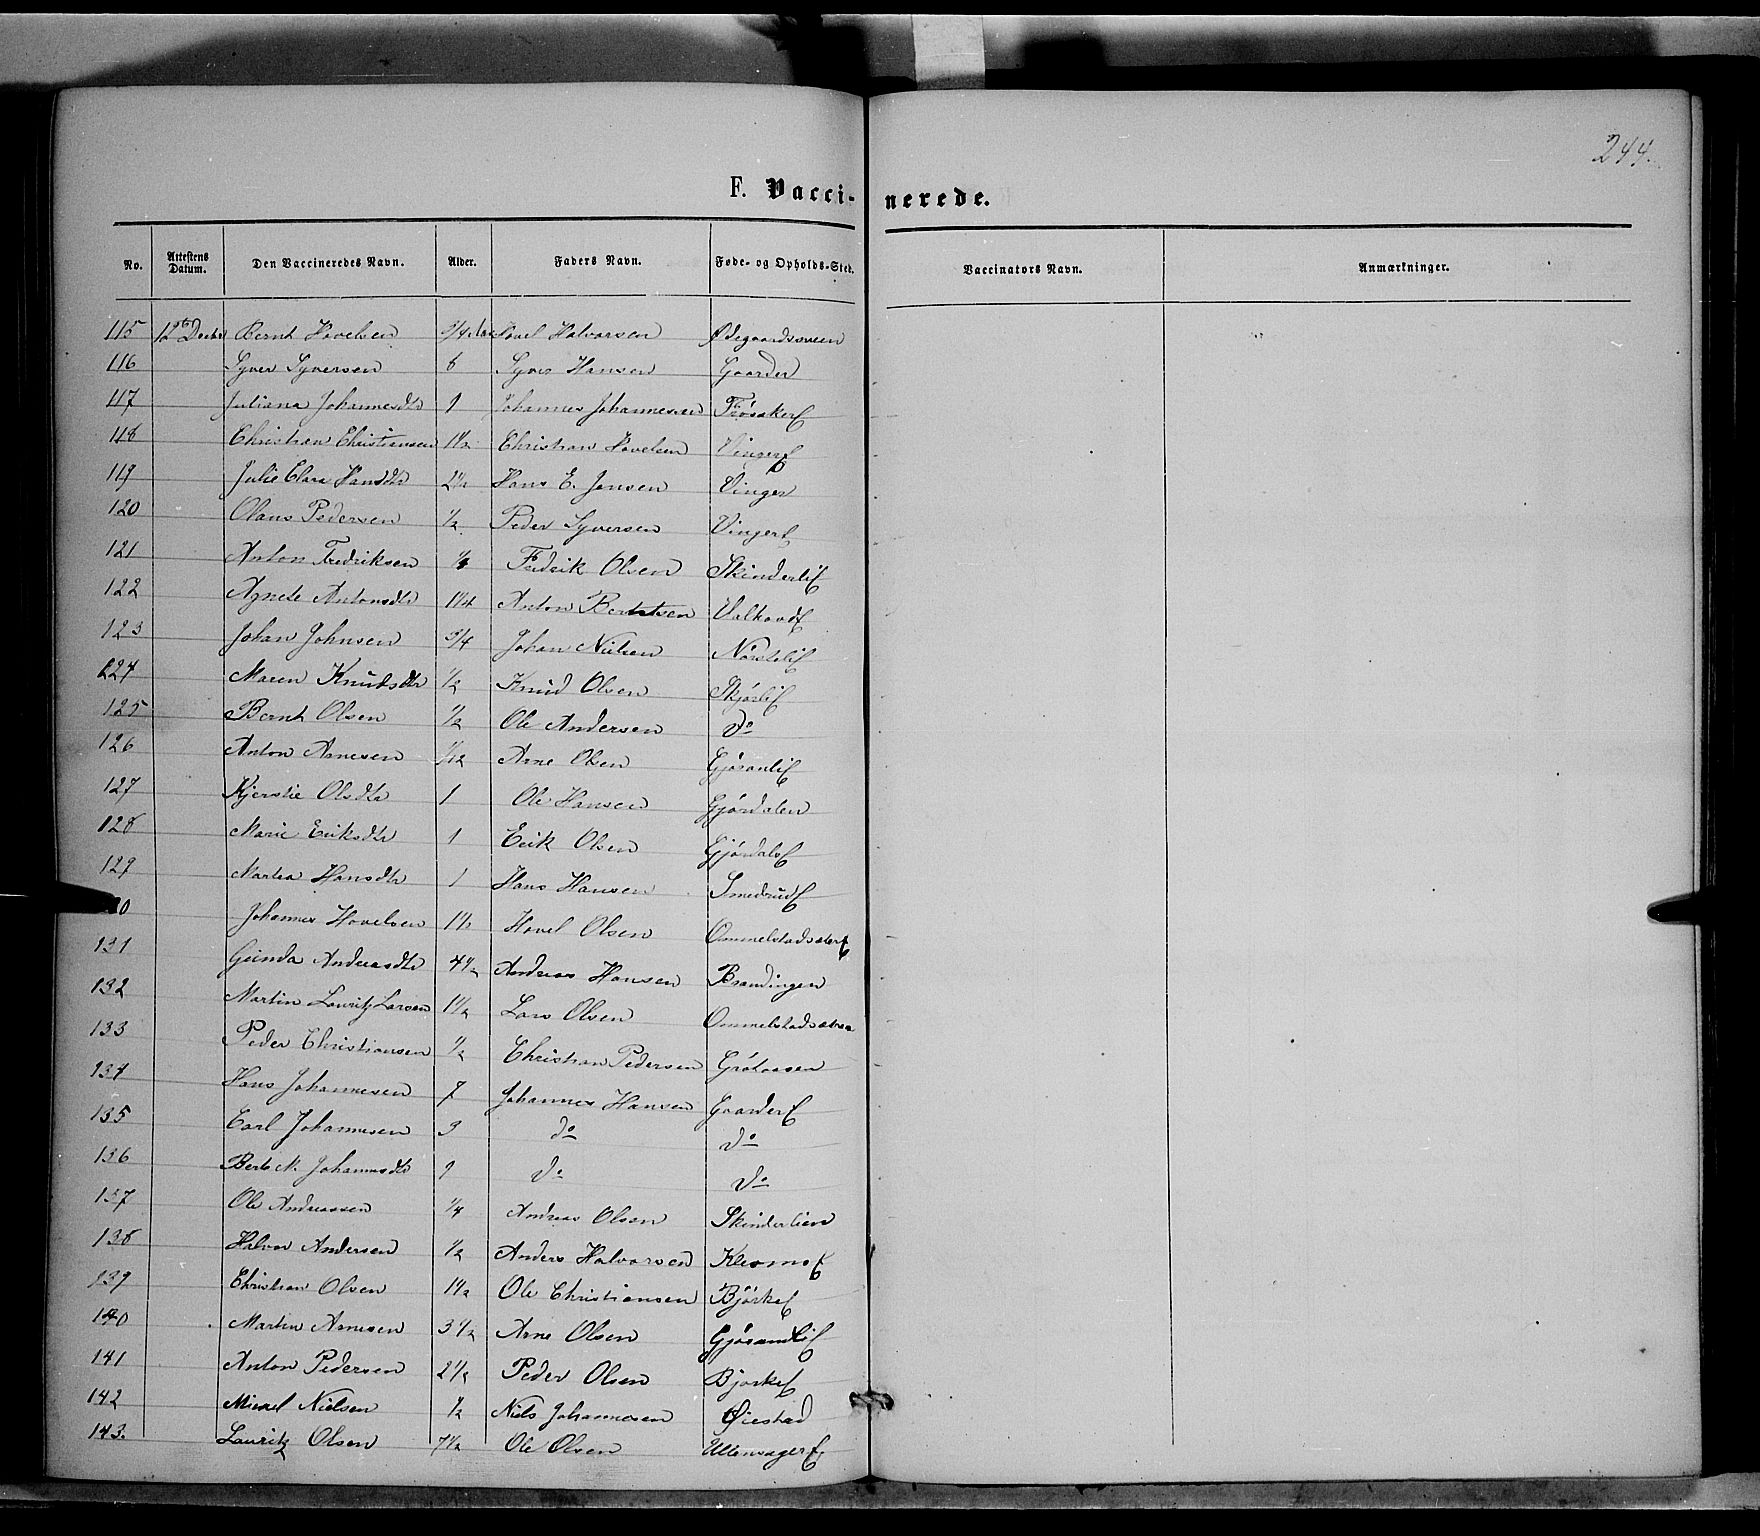 244.
F. Vaccinerede.
No. Attestens Datum. Den Vaccineredes Navn. Alder. Faders Navn. Føde- og Opholds-Sted. Vaccinators Navn. Anmærkninger.
115 12 Decbr Bernt Hovelsen 3/4 Hovel Halvorsen Ødegaardssveen
116 Syver Syversen 6 Syver Hansen Gaarder
117 Juliana Johannesdtr 1 Johannes Johannesen Frøsaker
118 Christian Christiansen 1 1/2 Christian Hovelsen Vinger
119 Julie Clara Hansdtr 2 1/2 Hans E. Jensen Vinger
120 Olaus Pedersen 1/2 Peder Syversen Vinger
121 Anton Fredriksen Fredrik Olsen Skinderli
122 Agnete Antonsdtr 1 1/4 Anton Berntsen Valhovd
123 Johan Johnsen 3/4 Johan Nielsen Nørsteli
124 Maren Knudsdtr 1/2 Knud Olsen Skjørli
125 Bernt Olsen 1/2 Ole Andersen do
126 Anton Arnesen 1/12 Arne Olsen Gjøsanli
127 Kjerstie Olsdtr 1 Ole Hansen Gjørdalen
128 Marie Eriksdtr 1 Erik Olsen Gjørdals
129 Martea Hansdtr 1 Hans Hansen Smedsrud
Johannes Hovelsen 1 1/2 Hovel Olsen Ommelstadsæter
131 Gunda Andreasdtr 4 1/2 Andreas Hansen Brandingen
132 Martin Lauritz Larsen 1 1/2 Lars Olsen Ommelstadsætra
133 Peder Christiansen 1/2 Christian Pedersen Grøtaasen
134 Hans Johannesen 7 Johannes Hansen Gaarder
135 Carl Johannesen 3 do do
136 Berte M. Johannesdtr 1 do do
137 Ole Andreassen 1/4 Andreas Olsen Skinderlien
138 Halvor Andersen 1/2 Anders Halvorsen Klosmo
139 Christian Olsen 1 1/2 Ole Christiansen Bjørke
140 Martin Arnesen 3 1/2 Arne Olsen Gjøsandli
141 Anton Pedersen 2 1/2 Peder Olsen Bjørke
142 Mikael Nielsen 1/2 Niels Johannesen Øiestad
143. Lauritz Olsen 7 1/2 Ole Olsen Ullensager